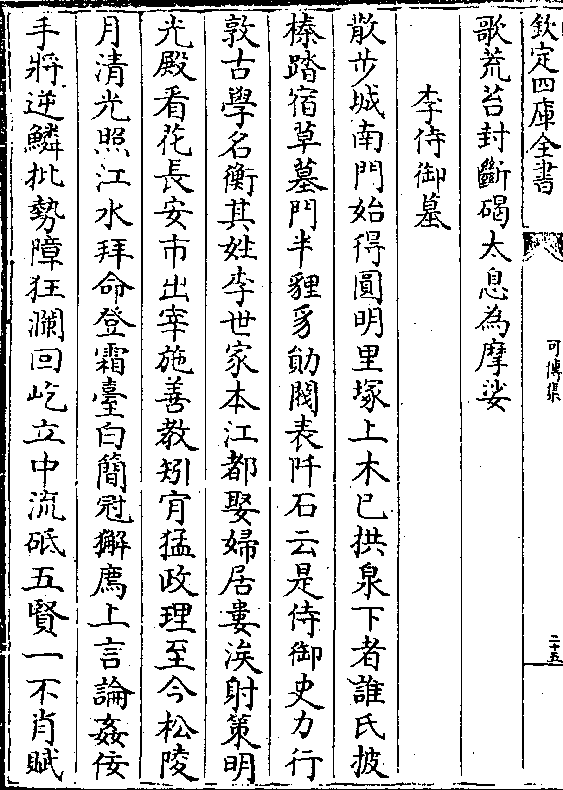 欽定四庫全書
可傳集
二十五
歌荒苔封斷碣太息為摩娑
李侍御墓
散步城南門始得圓明里塚上木已拱泉下者誰氏披
榛踏宿草墓門半貍豸勛閥表阡石云是侍御史力行
敦古學名衡其姓李世家本江都娶婦居婁涘射策明
光殿看花長安市出宰施善教矧宵猛政理至今松陵
月清光照江水拜命登霜臺白簡冠獬廌上言論姦佞
手將逆鱗批勢障狂瀾回屹立中流砥五賢一不肖賦